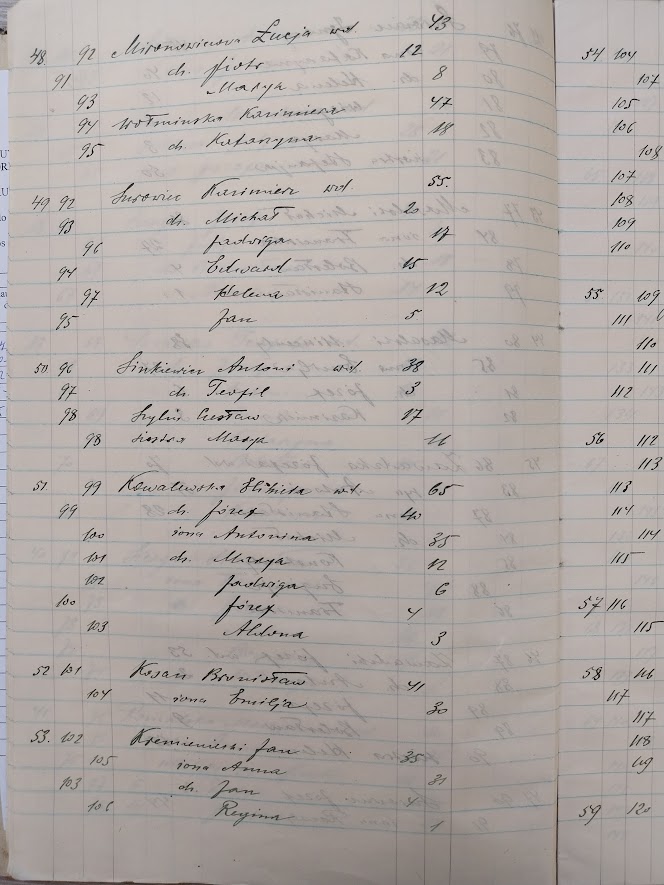 48. 92 Mironowiczowa Łucja wd. 43
91 dz. Piotr 12
93 Marya 8
94 Wołmińska Kazimiera 47
95 dz. Katarzyna 18
49 92 Surowiec Kazimierz wd. 55.
93 dz. Michał 20
96 Jadwiga 17
94 Edward 15
97 Helena 12
95 Jan 5
50 96 Sinkiewicz Antoni wd. 38
97 dz. Teofil 3
98 Szylin Czesław 17
98 siostra Marya 11
51. 99 Kowalewska Elżbieta wd. 65
99 dz. Józef 40
100 żona Antonina 35
101 dz. Marya 12
102 Jadwiga 6
100 Józef 4
103 Aldona 3
52 101 Kosan Bronisław 41
104 żona Emilja 30
53. 102 Kremieniecki Jan 35
105 żona Anna 31
103 dz. Jan 4
106 Regina 1
54 104
107
105
106
108
107
108
109
110
55 109
111
110
111
112
56 112
113
113
114
114
115
57 116
115
58 116
117
117
118
119
59 120